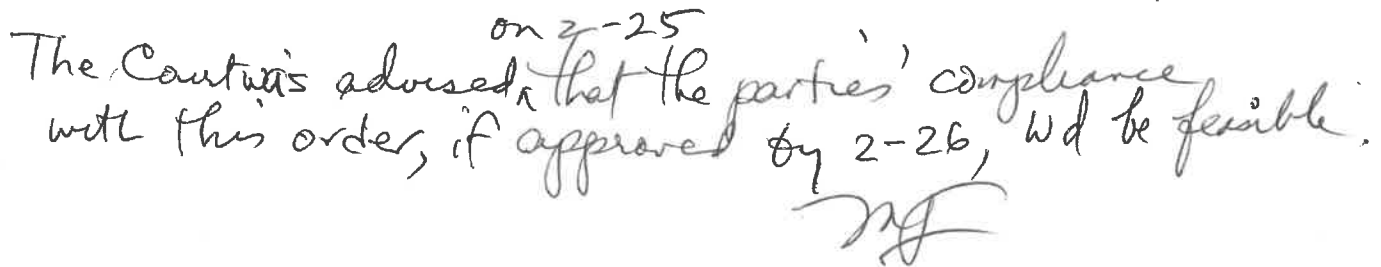 on 2-25
The Court was advised ^ that the parties' compliance
with this order, if approved by 2-26, wd be feasible.